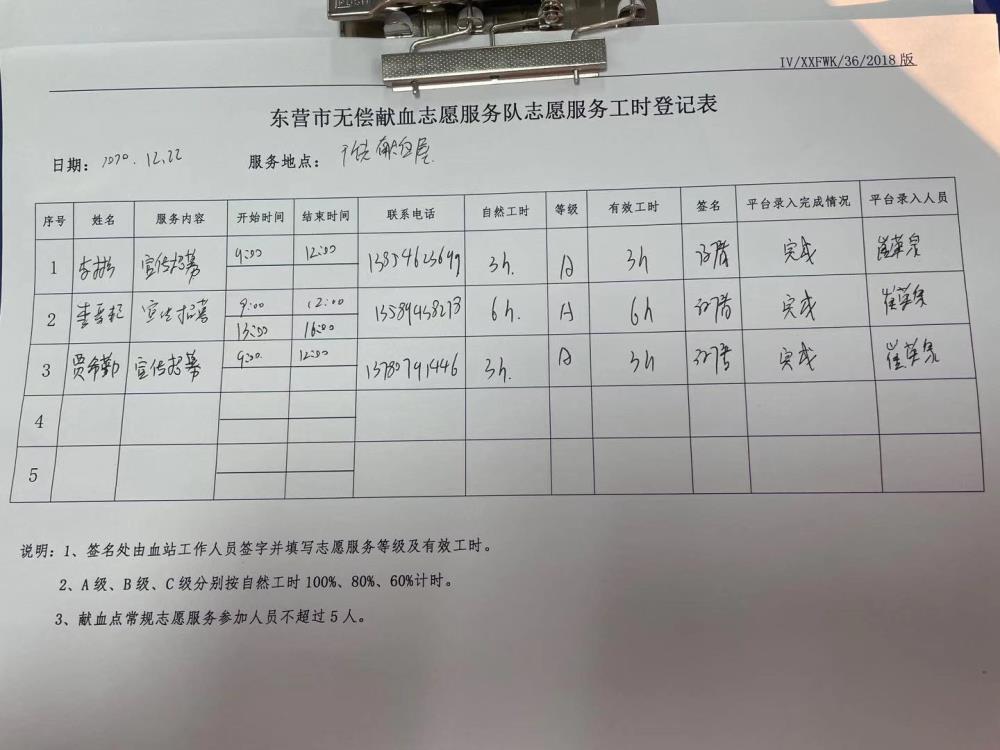 IV/XXFWK/36/2018版
东营市无偿献血志愿服务队志愿服务工时登记表
日期：2020.12.22 服务地点： 献血屋
序号 姓名 服务内容 开始时间 结束时间 联系电话 自然工时 等级 有效工时 签名 平台录入完成情况 平台录入人员
1 宣传招募 9:00 12:00 3h. A 3h 完成
2 宣传招募 9:00 12:00 13589438273 6h. A 6h 完成
13:00 16:00
3 贾希勤 宣传招募 9:00. 12:00 13780791446 3h. A 3h 完成
4
5
说明：1、签名处由血站工作人员签字并填写志愿服务等级及有效工时。
2、A级、B级、C级分别按自然工时100%、80%、60%计时。
3、献血点常规志愿服务参加人员不超过5人。